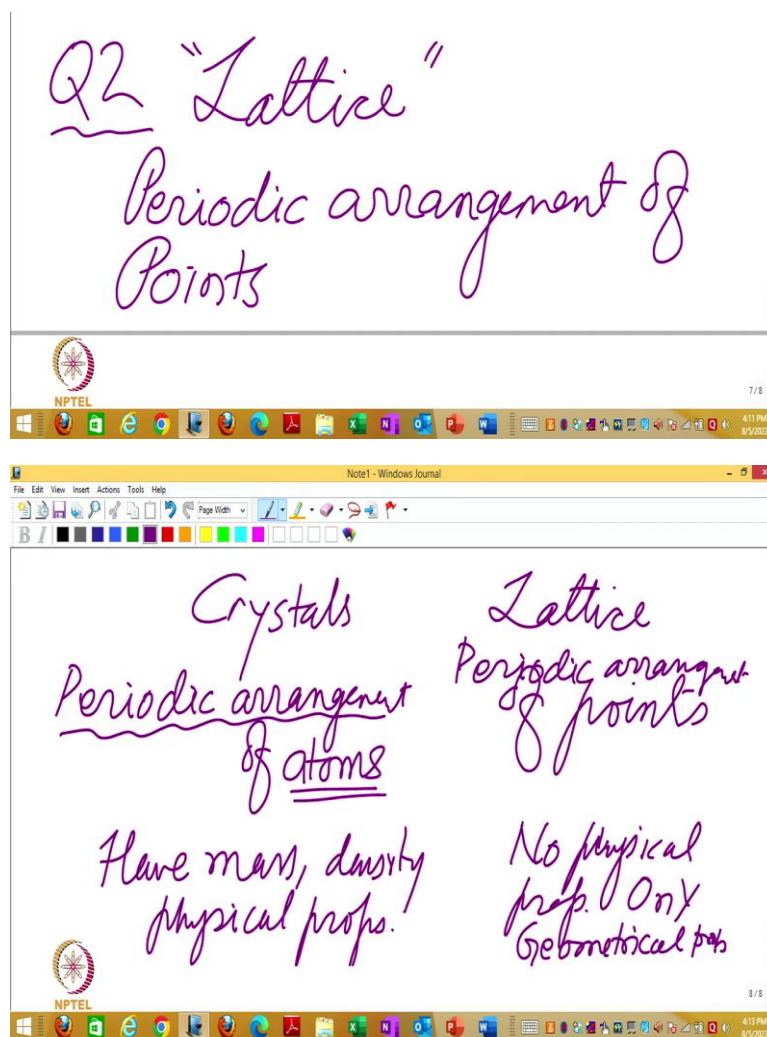 Q2 "Lattice"
Periodic arrangement of
Points
NPTEL
7/8
4:11 PM
8/5/2022
Note1 - Windows Journal
File Edit View Insert Actions Tools Help
Page Width
B I
Crystals
Periodic arrangement
of atoms
Have mass, density
physical props.
Lattice
Periodic arrangement
of points
No physical
prop. Only
Geometrical props
NPTEL
8/8
4:13 PM
8/5/2022